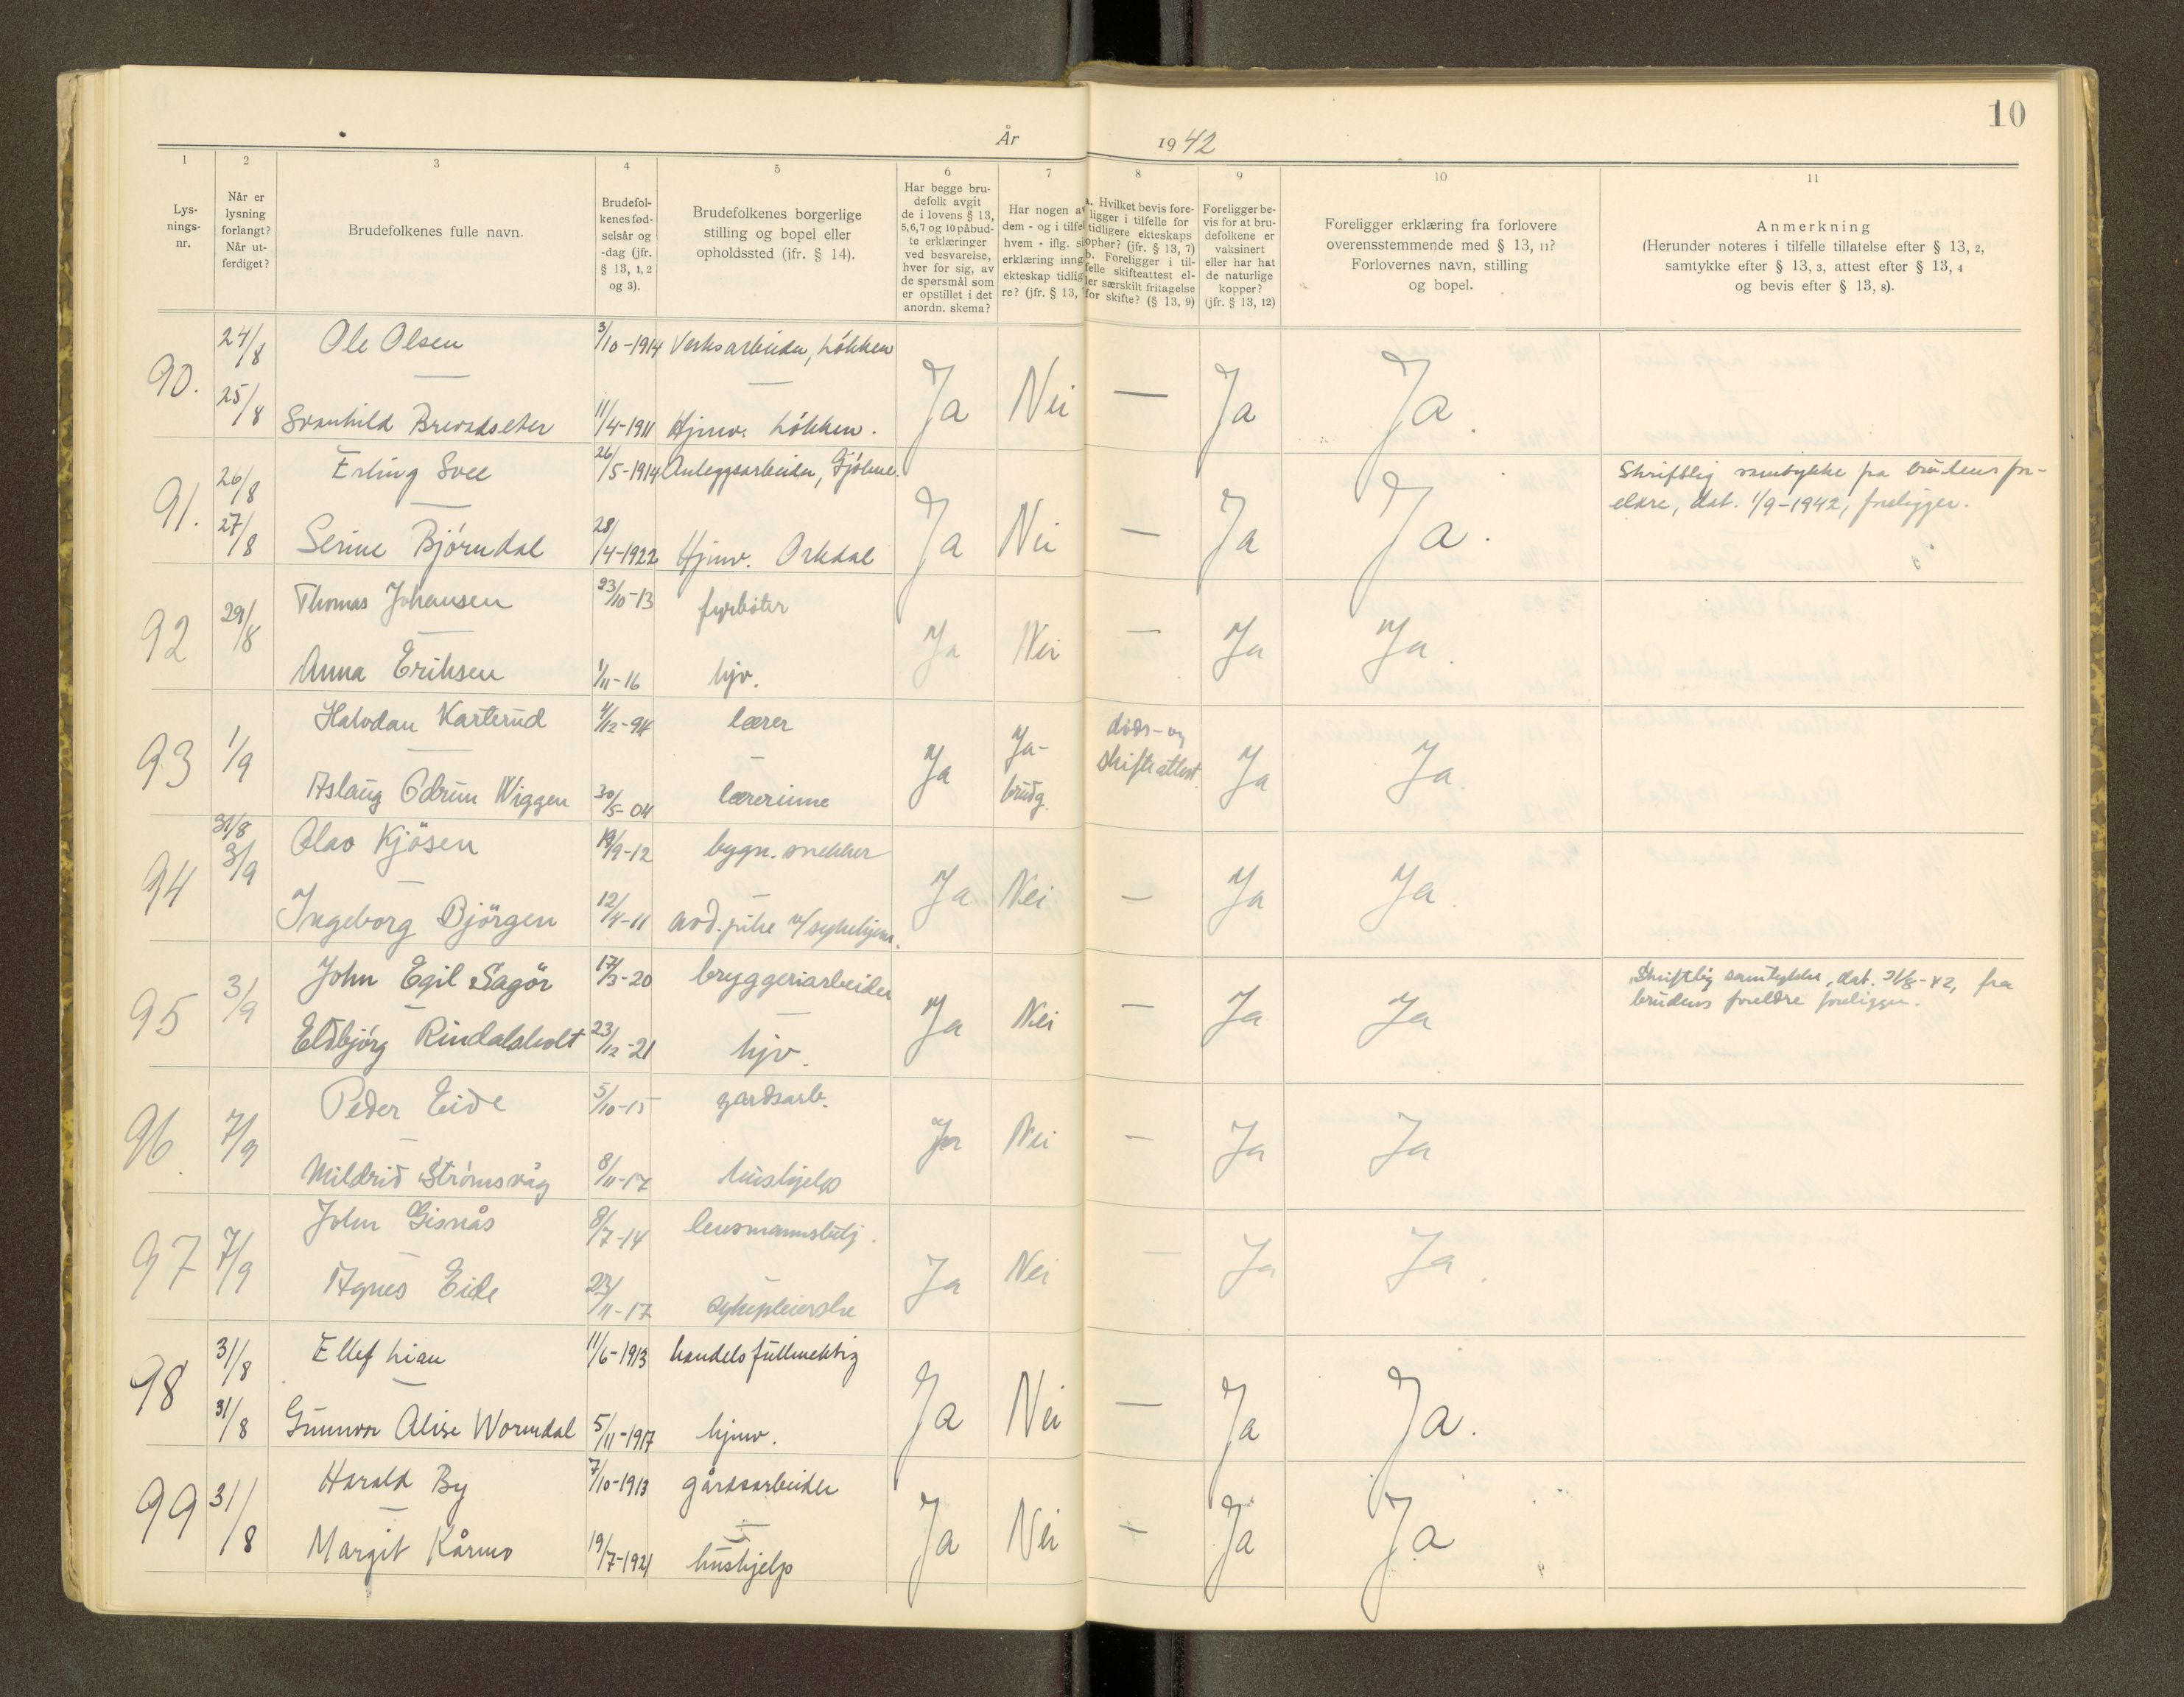 10
År 1942
1 2 3 4 5 6 7 8 9 10 11
Lys-
nings-
nr.
Når er
lysning
forlangt?
Når ut-
ferdiget?
Brudefolkenes fulle navn.
Brudefol-
kenes fød-
selsår og
-dag (jfr.
§ 13, 1, 2
og 3).
Brudefolkenes borgerlige
stilling og bopel eller
opholdssted (jfr. § 14).
Har begge bru-
defolk avgit
de i lovens § 13,
5,6,7 og 10 påbud-
te erklæringer
ved besvarelse,
hver for sig, av
de spørsmål som
er opstillet i det
anordn. skema?
Har nogen av
dem - og i tilfel
hvem - iflg. si
erklæring inng
ekteskap tidlig
re? (jfr. § 13,
a. Hvilket bevis fore-
ligger i tilfelle for
tidligere ekteskaps
ophør? (jfr. § 13, 7)
b. Foreligger i til-
felle skifteattest el-
ler særskilt fritagelse
for skifte? (§ 13, 9)
Foreligger be-
vis for at bru-
defolkene er
vaksinert
eller har hat
de naturlige
kopper?
(jfr. § 13, 12)
Foreligger erklæring fra forlovere
overensstemmende med § 13, 11?
Forlovernes navn, stilling
og bopel.
Anmerkning
(Herunder noteres i tilfelle tillatelse efter § 13, 2,
samtykke efter § 13, 3, attest efter § 13, 4
og bevis efter § 13, 8).
24/8 Ole Olsen 3/10-1914 Verksarbeider, Løkken
90. — — Ja Nei — Ja Ja.
25/8 Svanhild Brevadseter 11/4-1911 Hjmv. Løkken.
26/8 Erling Svee 26/5-1914 Anleggsarbeider, Gjølme. Skriftlig samtykke fra brudens for-
eldre, dat. 1/9-1942, foreligger.
91. — Ja Nei — Ja Ja.
27/8 Serine Bjørndal 28/4-1922 Hjmv. Orkdal
Thomas Johansen 23/10-13 fyrbøter
92 29/8 — Ja Nei — Ja Ja.
Anna Eriksen 1/11-16 hjv.
Halvdan Karterud 4/12-94 lærer
93 1/9 — Ja Ja- brudg. døds- og skifteattest Ja Ja.
Aslaug Odrun Wiggen 30/5-04 lærerinne
31/8 Olav Kjösen 19/9-12 bygn. snekker
94 3/9 — Ja Nei — Ja Ja.
Ingeborg Björgen 12/4-11 avd. pike v/sykehjem.
John Egil Sagör 17/3-20 bryggeriarbeider Skriftlig samtykke, dat. 31/8-42, fra
brudens foreldre foreligger.
95 3/9 — — Ja Nei — Ja Ja
Eldbjørg Rindalsholt 23/12-21 hjv.
Peder Eide 5/10-15 gardsarb.
96. 7/9 — Ja Nei — Ja Ja
Mildrid Strömsvåg 8/11-17 hushjelp
John Gisnås 8/7-14 lensmannsbetj.
97 7/9 — Ja Nei — Ja Ja.
Agnes Eide 23/11-17 sykepleierske
31/8 Ellef Lian 11/6-1913 handelsfullmektig
98 — Ja Nei — Ja Ja.
31/8 Gunnvor Alise Wormdal 5/11-1917 hjmv.
Harald By 7/10-1913 gårdsarbeider
99 31/8 — — Ja Nei — Ja Ja
Margit Kårmo 19/7-1921 hushjelp